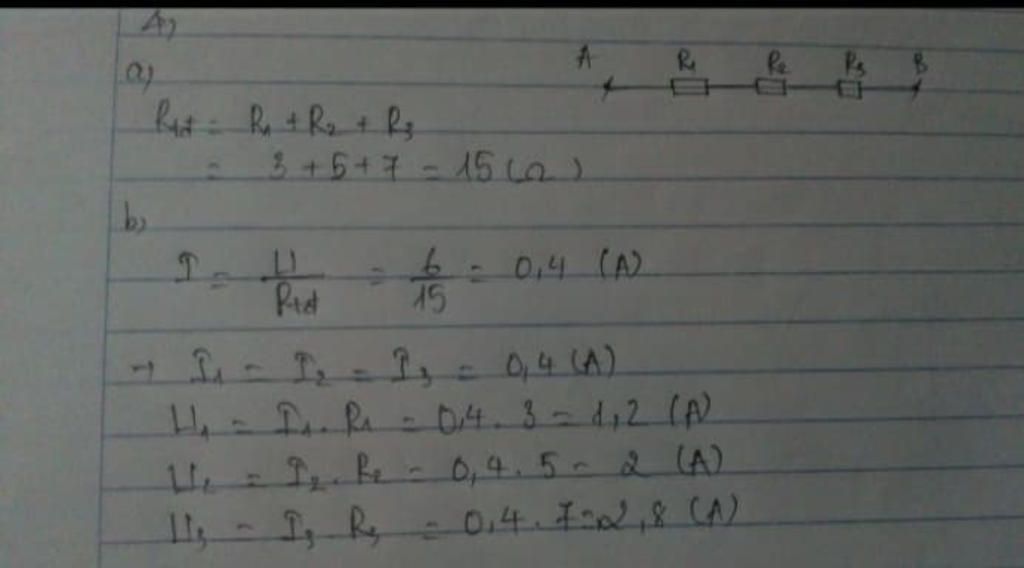 1,
a)
A R1 R2 R3 B
Rtđ = R1 + R2 + R3
= 3 + 5 + 7 = 15 (Ω)
b)
I = U / Rtđ = 6 / 15 = 0,4 (A)
→ I1 = I2 = I3 = 0,4 (A)
U1 = I1 . R1 = 0,4 . 3 = 1,2 (A)
U2 = I2 . R2 = 0,4 . 5 = 2 (A)
U3 = I3 R3 = 0,4 . 7 = 2,8 (A)